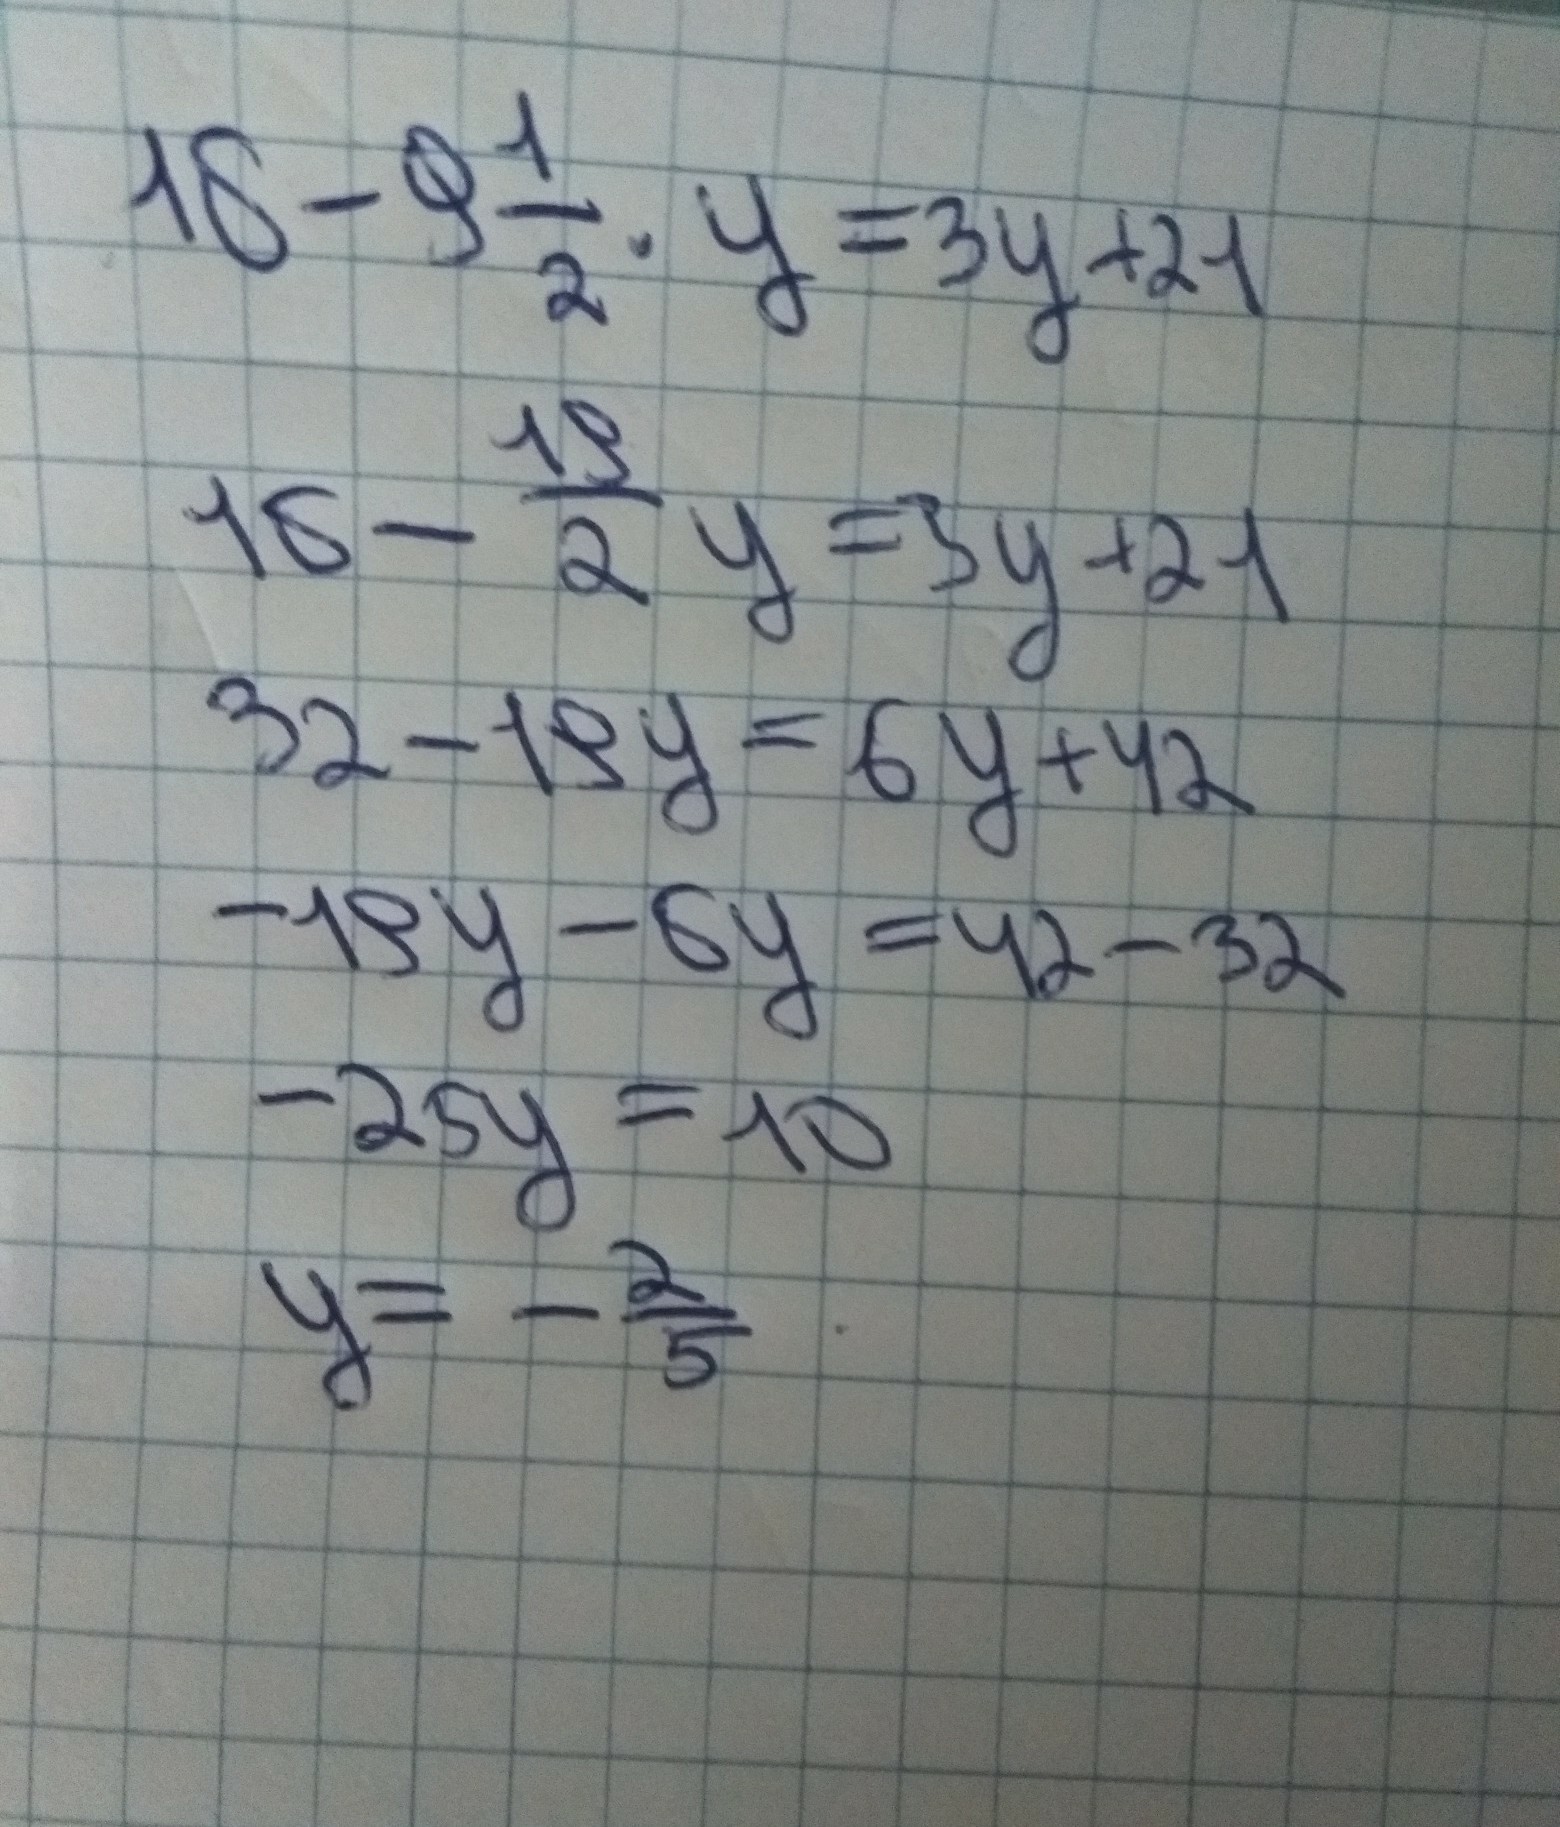 16 - 9 1/2 · y = 3y + 21
16 - 19/2 y = 3y + 21
32 - 19y = 6y + 42
-19y - 6y = 42 - 32
-25y = 10
y = - 2/5